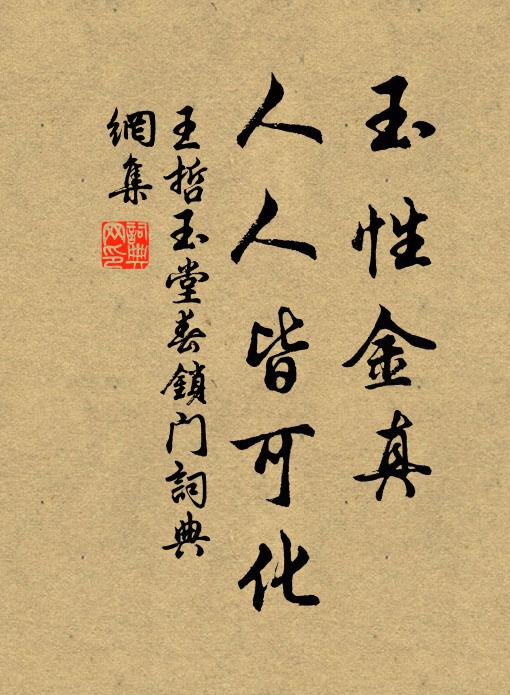 玉性金真
人人皆可化
王哲玉堂春鎖門詞典
網集
詞典網印